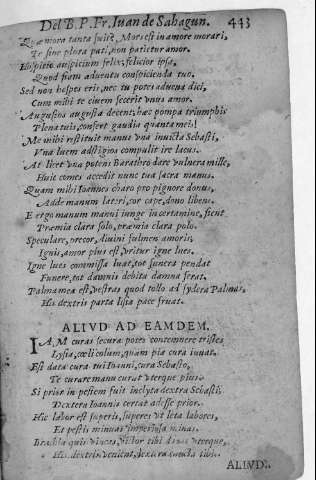 Del B. P. Fr. Iuan de Sahagun. 443
Quæ mora tanta fuit? Mors est in amore morari,
Te sine plora pati, non patietur amor.
Hospitio auspicium felix, felicior ipsa,
Quod fiam aduentu conspicienda tuo.
Sed non hospes eris, nec tu potes aduena dici,
Cum mihi te ciuem fecerit vnus amor.
Augustos augusta decent: hæc pompa triumphis
Plena tuis, confert gaudia quanta meis!
Me mihi restituit manus vna inuicta Sebasti,
Vna luem adstigios compulit ire lacus.
At licet vna potens Barathro dare vulnera mille,
Huic comes accedit nunc tua sacra manus.
Quam mihi Ioannes charo pro pignore donus,
Adde manum lateri, cor cape, dono libens.
E ergo manum manui iunge in certamine, fient
Præmia clara solo, præmia clara polo.
Speculare, precor, diuini fulmen amoris,
Ignis, amor plus est, vritur igne lues.
Igne lues commissa luat, tot funera pendat
Funere, tot damnis debita damna ferat.
Palma mea est, vestras quod tollo ad sydera Palmas,
His dextris parta lisia pace fruat.
ALIVD AD EAMDEM.
IAM curas secura potes contemnere tristes
Lysia, cœlicolum, quam pia cura iuuat.
Est data cura tui Ioanni, cura Sebasto,
Te curare manu curat vterque pius.
Si prior in pestem fuit inclyta dextra Sebasti,
Dextera Ioannis certat adesse prior.
Hic labor est superis, superet vt leta labores,
Et pestis minuat imperiosa minas.
quis vincet, victor tibi vterque,
His dextris
ALIVD.